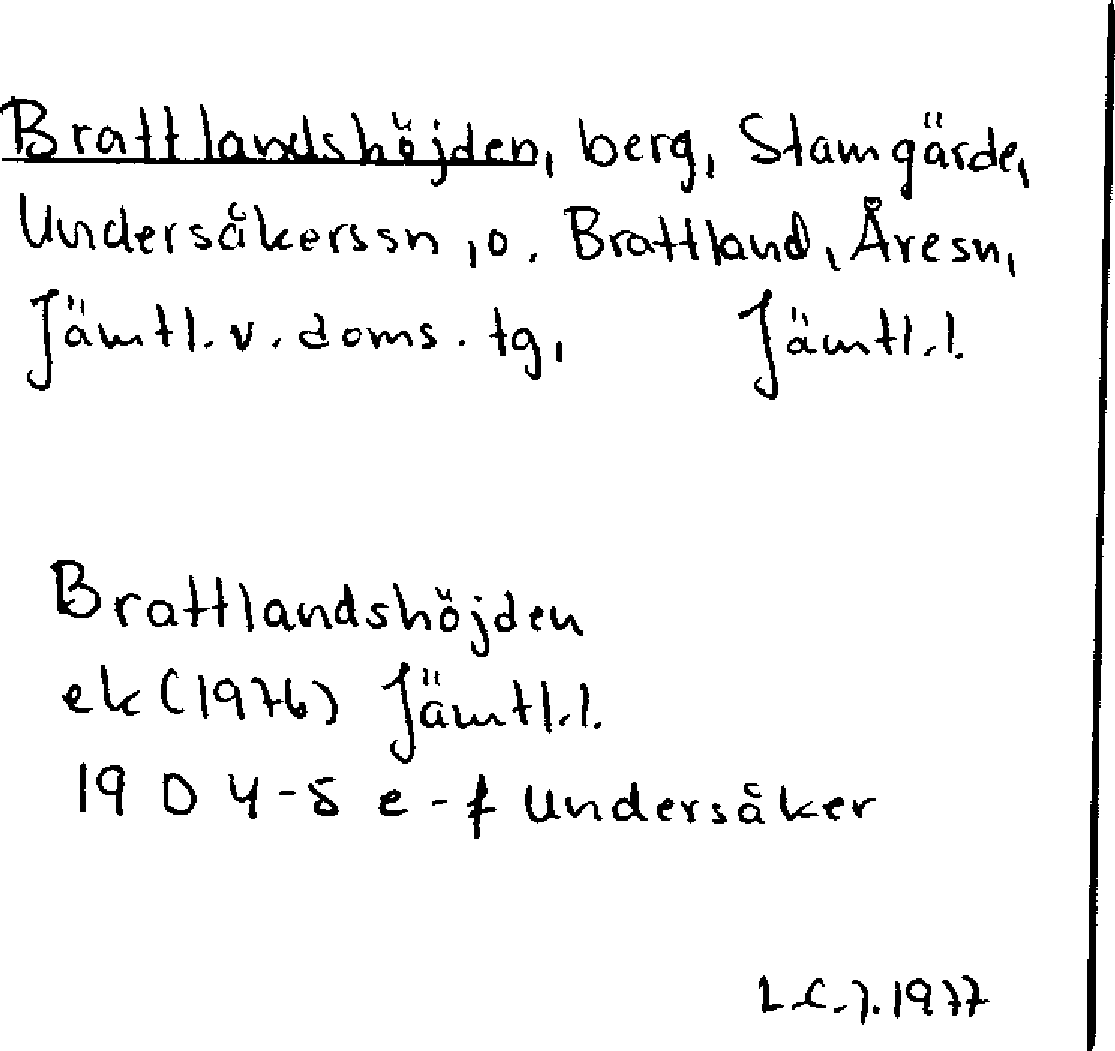 Brattlandshöjden, berg, Stamgärde,
Undersåkerssn, o. Brattland, Åresn,
Jämtl. v. doms. tg, Jämtl. l.
Brattlandshöjden
ek (1976) Jämtl. l.
19 D 4-5 e-f Undersåker
1977